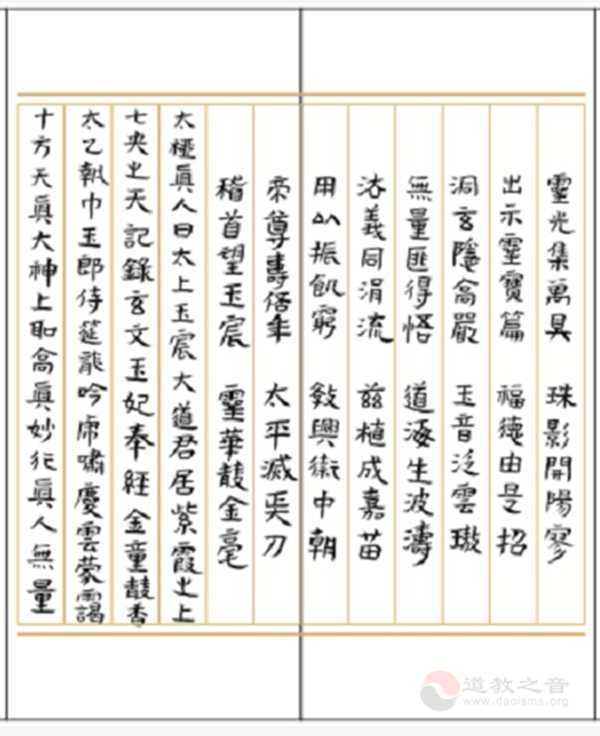 靈光集萬真 珠影開陽寥
出示靈寶篇 福德由是招
洞玄隱高嚴 玉音泛雲璈
無量匪得悟 道逐生波濤
義同涓流 茲植成嘉苗
用以振飢窮 敎興衛中朝
帝尊壽億年 太平滅兵刀
稽首望玉宸 靈華馥金毫
太極眞人曰太上玉宸大道君居紫霞之上
七央之天記錄玄文玉妃奉經金童馥香
太乙執巾玉郎侍筵龍吟虎嘯慶雲蒙靄
十方天眞大神上聖高眞妙行眞人無量
道教之音
www.daoisms.org